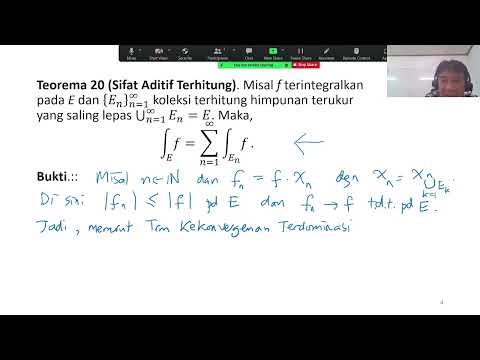 Teorema 20 (Sifat Aditif Terhitung). Misal f terintegralkan
pada E dan {Eₙ}ₙ₌₁^∞ koleksi terhitung himpunan terukur
yang saling lepas ⋃ₙ₌₁^∞ Eₙ = E. Maka,
∫_E f = ∑ₙ₌₁^∞ ∫_Eₙ f . ←
Bukti.:: Misal n∈ℕ dan fₙ = f · χₙ dgn χₙ = χ_⋃ₖ₌₁ⁿ Eₖ .
Di sini |fₙ| ≤ |f| pd E dan fₙ → f t.d.t. pd E.
Jadi, menurut Trm Kekonvergenan Terdominasi
4